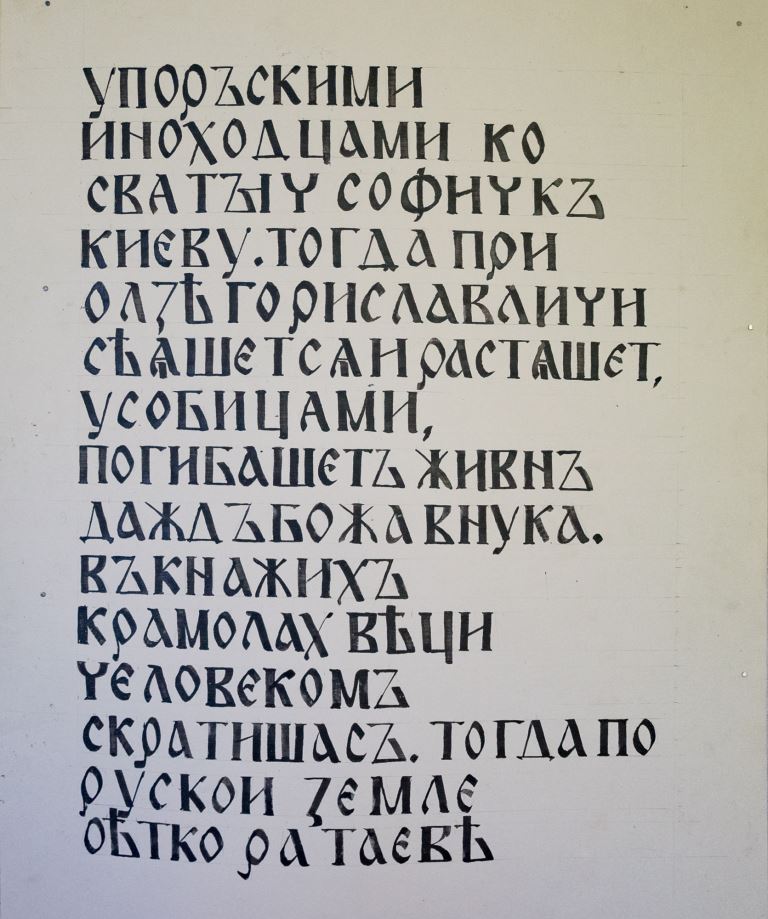 УПОРЪСКИМИ
ИНОХОДЦАМИ КО
СВАТЪІУ СОФИҮ КЪ
КИЄВУ. ТОГДА ПРИ
ОЛꙀѢ ГОРИСЛАВЛИҮИ
СѢѦШЄТСѦ И РАСТѦШЄТ,
УСОБИЦАМИ,
ПОГИБАШЄТЪ ЖИВНЪ
ДАЖДЪБОЖА ВНУКА.
ВЪ КНАЖИХЪ
КРАМОЛАХ ВѢЦИ
ҮЄЛОВЄКОМЪ
СКРАТИШАСЪ. ТОГДА ПО
РУСКОИ ꙀЄМЛЄ
ОѢТКО РАТАЄВѢ